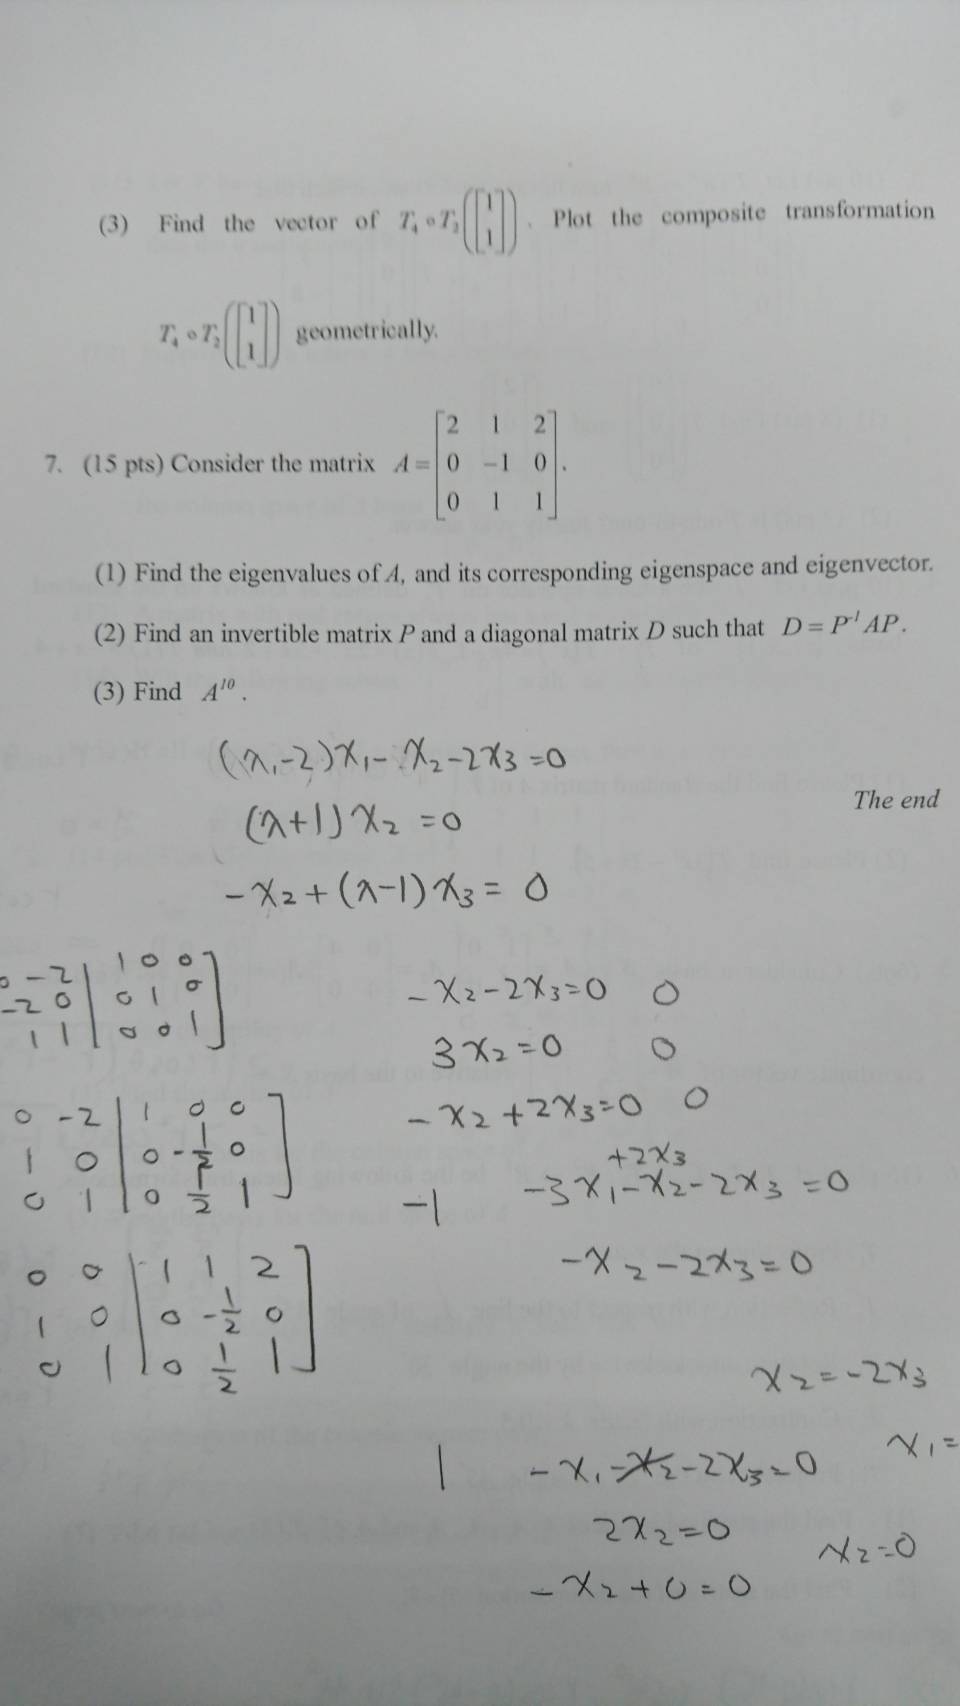 (3) Find the vector of T₄ ∘ T₂([1 1]). Plot the composite transformation
T₄ ∘ T₂([1 1]) geometrically.
7. (15 pts) Consider the matrix A = [2 1 2
0 -1 0
0 1 1].
(1) Find the eigenvalues of A, and its corresponding eigenspace and eigenvector.
(2) Find an invertible matrix P and a diagonal matrix D such that D = P⁻¹AP.
(3) Find A¹⁰.
(λ-2)x₁-x₂-2x₃=0
The end
(λ+1)x₂=0
-x₂+(λ-1)x₃=0
0 -2 | 1 0 0]
-2 0 | 0 1 0
1 1 | 0 0 1
-x₂-2x₃=0 0
3x₂=0 0
-x₂+2x₃=0 0
0 -2 | 1 0 0]
1 0 | 0 -1/2 0
0 1 | 0 1/2 1
+2x₃
-1 -3x₁-x₂-2x₃=0
-x₂-2x₃=0
0 0 | 1 1 2]
1 0 | 0 -1/2 0
0 1 | 0 1/2 1
x₂=-2x₃
x₁=
1 -x₁-x₂-2x₃=0
2x₂=0
x₂=0
-x₂+0=0